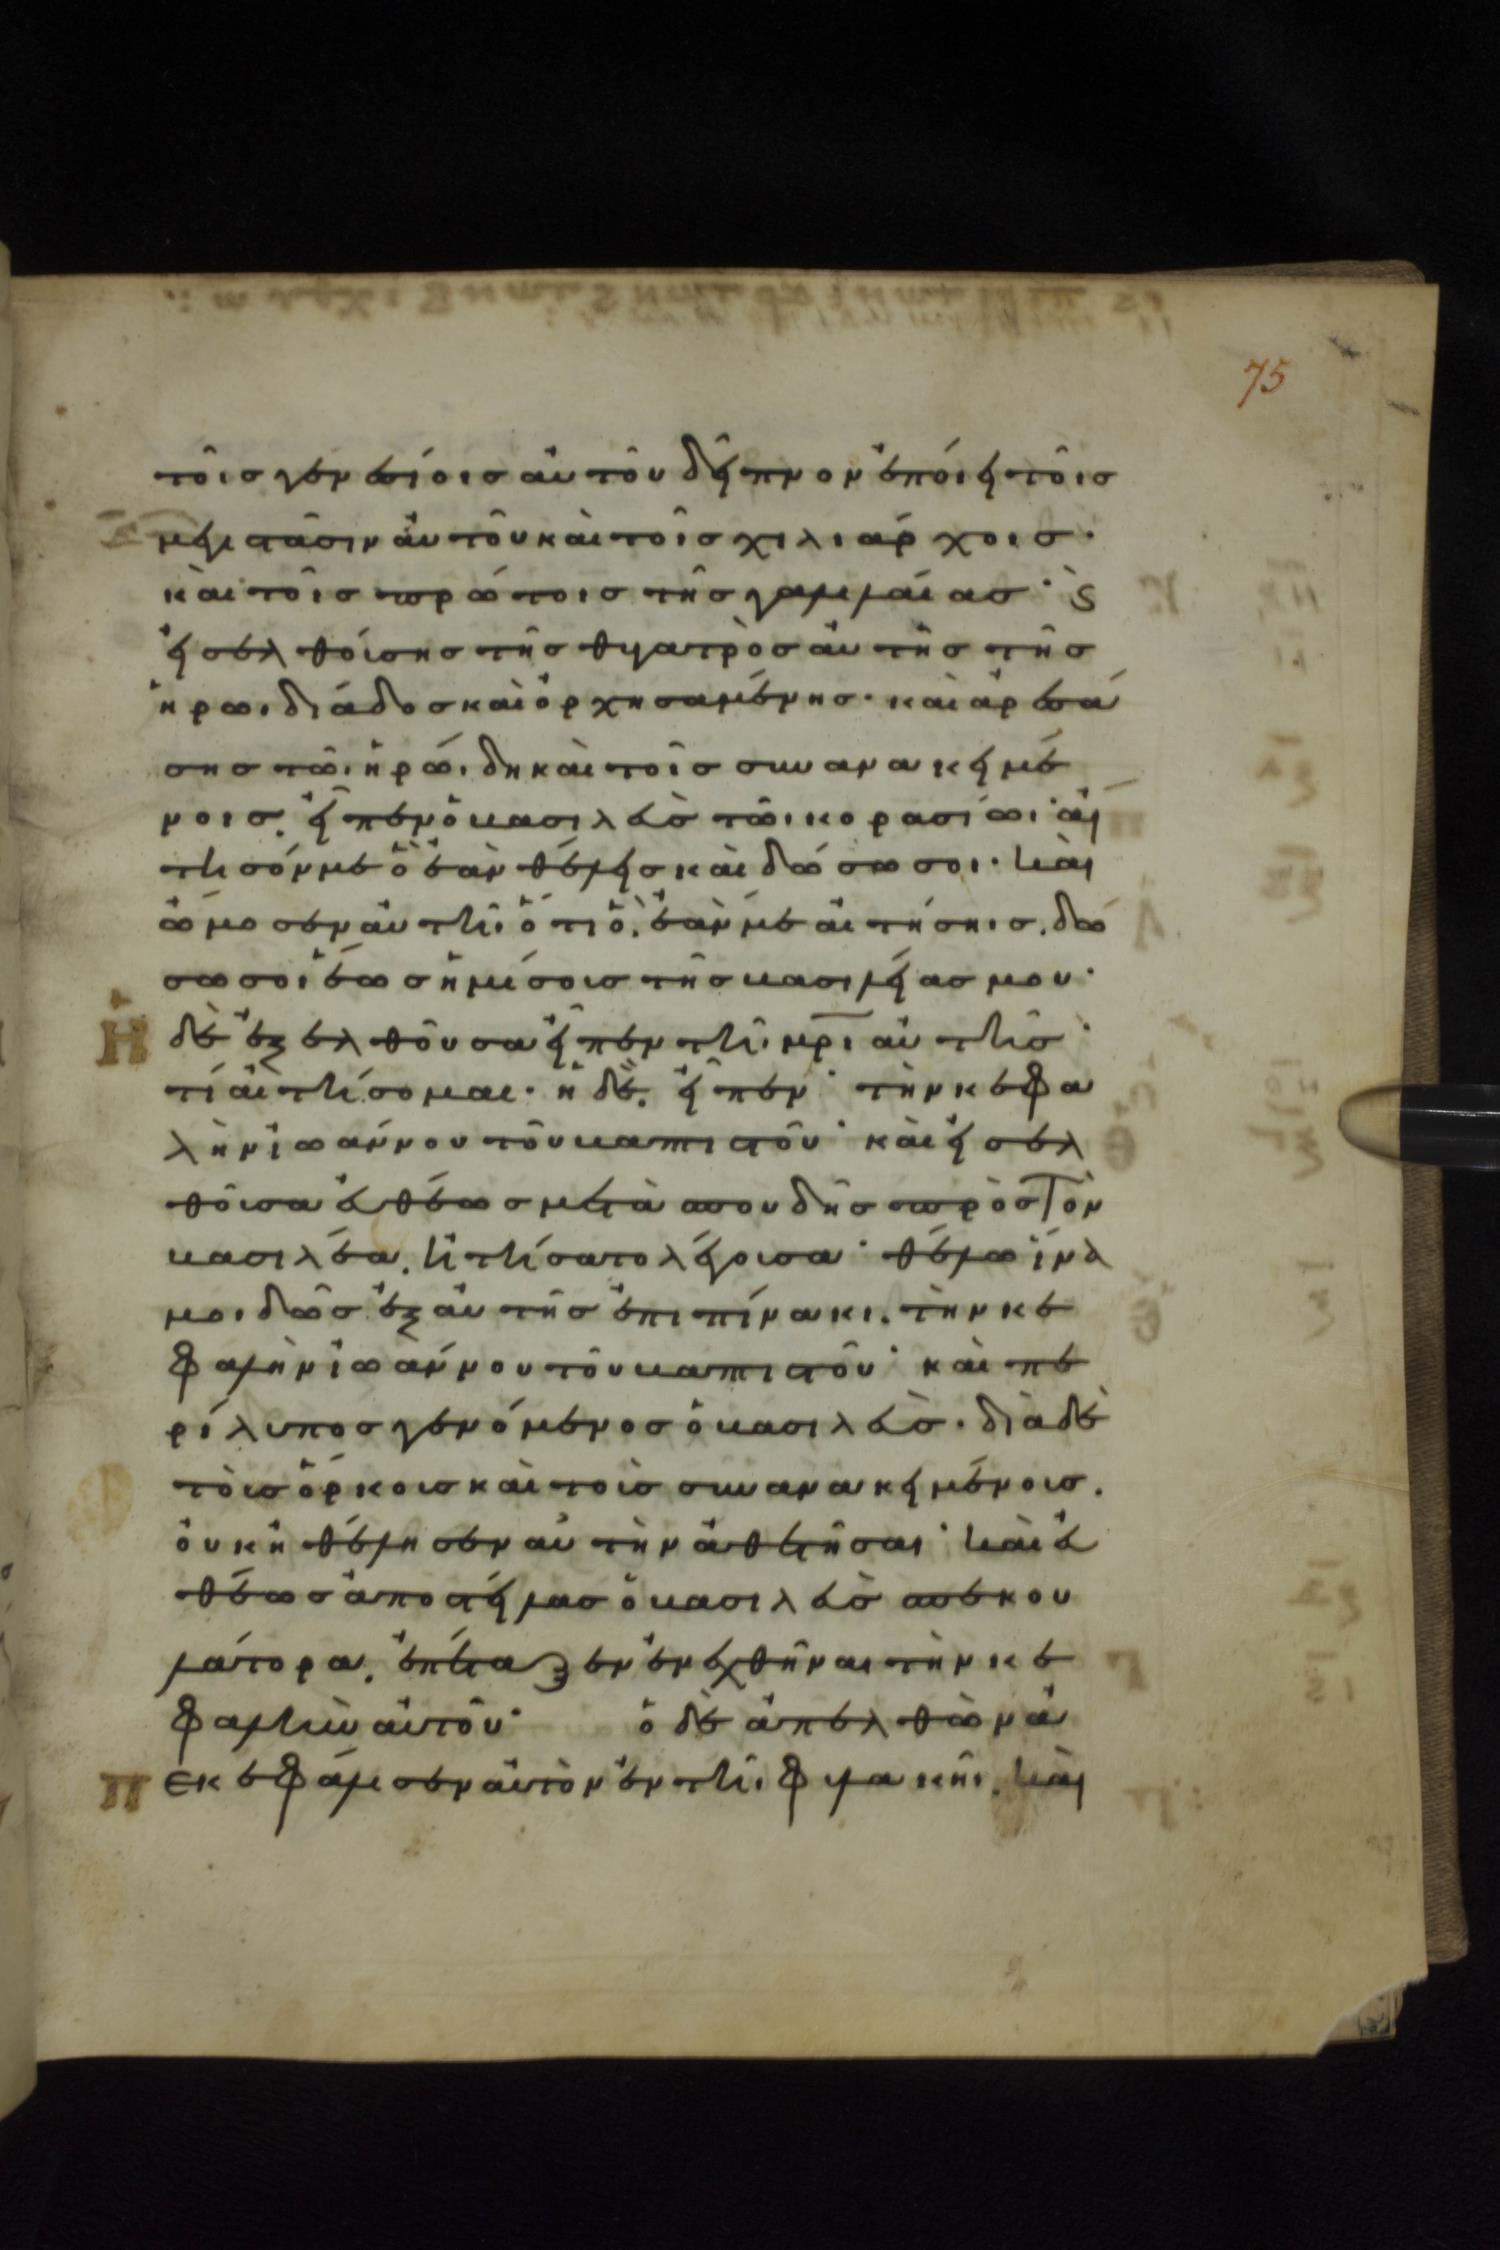 75
τοῖσ γενεσίοισ ἀυτοῦ δεῖπνον ἐπόιει τοῖσ
μεγιστᾶσιν ἀυτοῦ κὰι τοῖσ χιλιάρχοισ·
κὰι τοῖσ πρώτοισ τῆσ γαλιλαίασ· ϗ̀
ἐισελθούσησ τῆσ θυγατρὸσ ἀυτῆσ τῆσ
ἡρωιδιάδοσ κὰι ὀρχησαμένησ· κὰι ἀρεσά
σησ τῶι ἡρώιδη κὰι τοῖσ συνανακειμέ
νοισ. εἶπεν ὁ βασιλεὺσ τῶι κορασίωι· ἀί
τησόν με ὃ ἐὰν θέλεισ κὰι δώσω σοι· κὰι
ὤμοσεν ἀυτῆι ὅτι ὃ ἐάν με ἀιτήσηισ. δώ
σω σοι ἕωσ ἡμίσουσ τῆσ βασιλείασ μου·
Ἡ δὲ ἐξελθοῦσα εἶπεν τῆι μρι ἀυτῆσ·
τί ἀιτήσομαι· ἡ δὲ. εἶπεν· τὴν κεφα
λὴν ἰωάννου τοῦ βαπτιστοῦ· κὰι ἐισελ
θοῦσα ἐυθέωσ μετὰ σπουδῆσ πρὸσ τὸν
βασιλέα. ἠιτήσατο λέγουσα· θέλω ἵνα
μοι δῶσ ἐξ ἀυτῆσ ἐπι πίνακι. τὴν κε
φαλὴν ἰωάννου τοῦ βαπτιστοῦ· κὰι πε
ρίλυποσ γενόμενοσ ὁ βασιλεὺσ. διὰ δὲ
τοὺσ ὅρκουσ κὰι τοὺσ συνανακειμένουσ.
ὀυκ ἠθέλησεν ἀυτὴν ἀθετῆσαι· κὰι ἐυ
θέωσ ἀποστείλασ ὁ βασιλεὺσ σπεκου
λάτορα. ἐπέταξεν ἐνεχθῆναι τὴν κε
φαλὴν ἀυτοῦ· ὁ δὲ ἀπελθὼν ἀ
πεκεφάλισεν ἀυτὸν ἐν τῆι φυλακῆι. κὰι